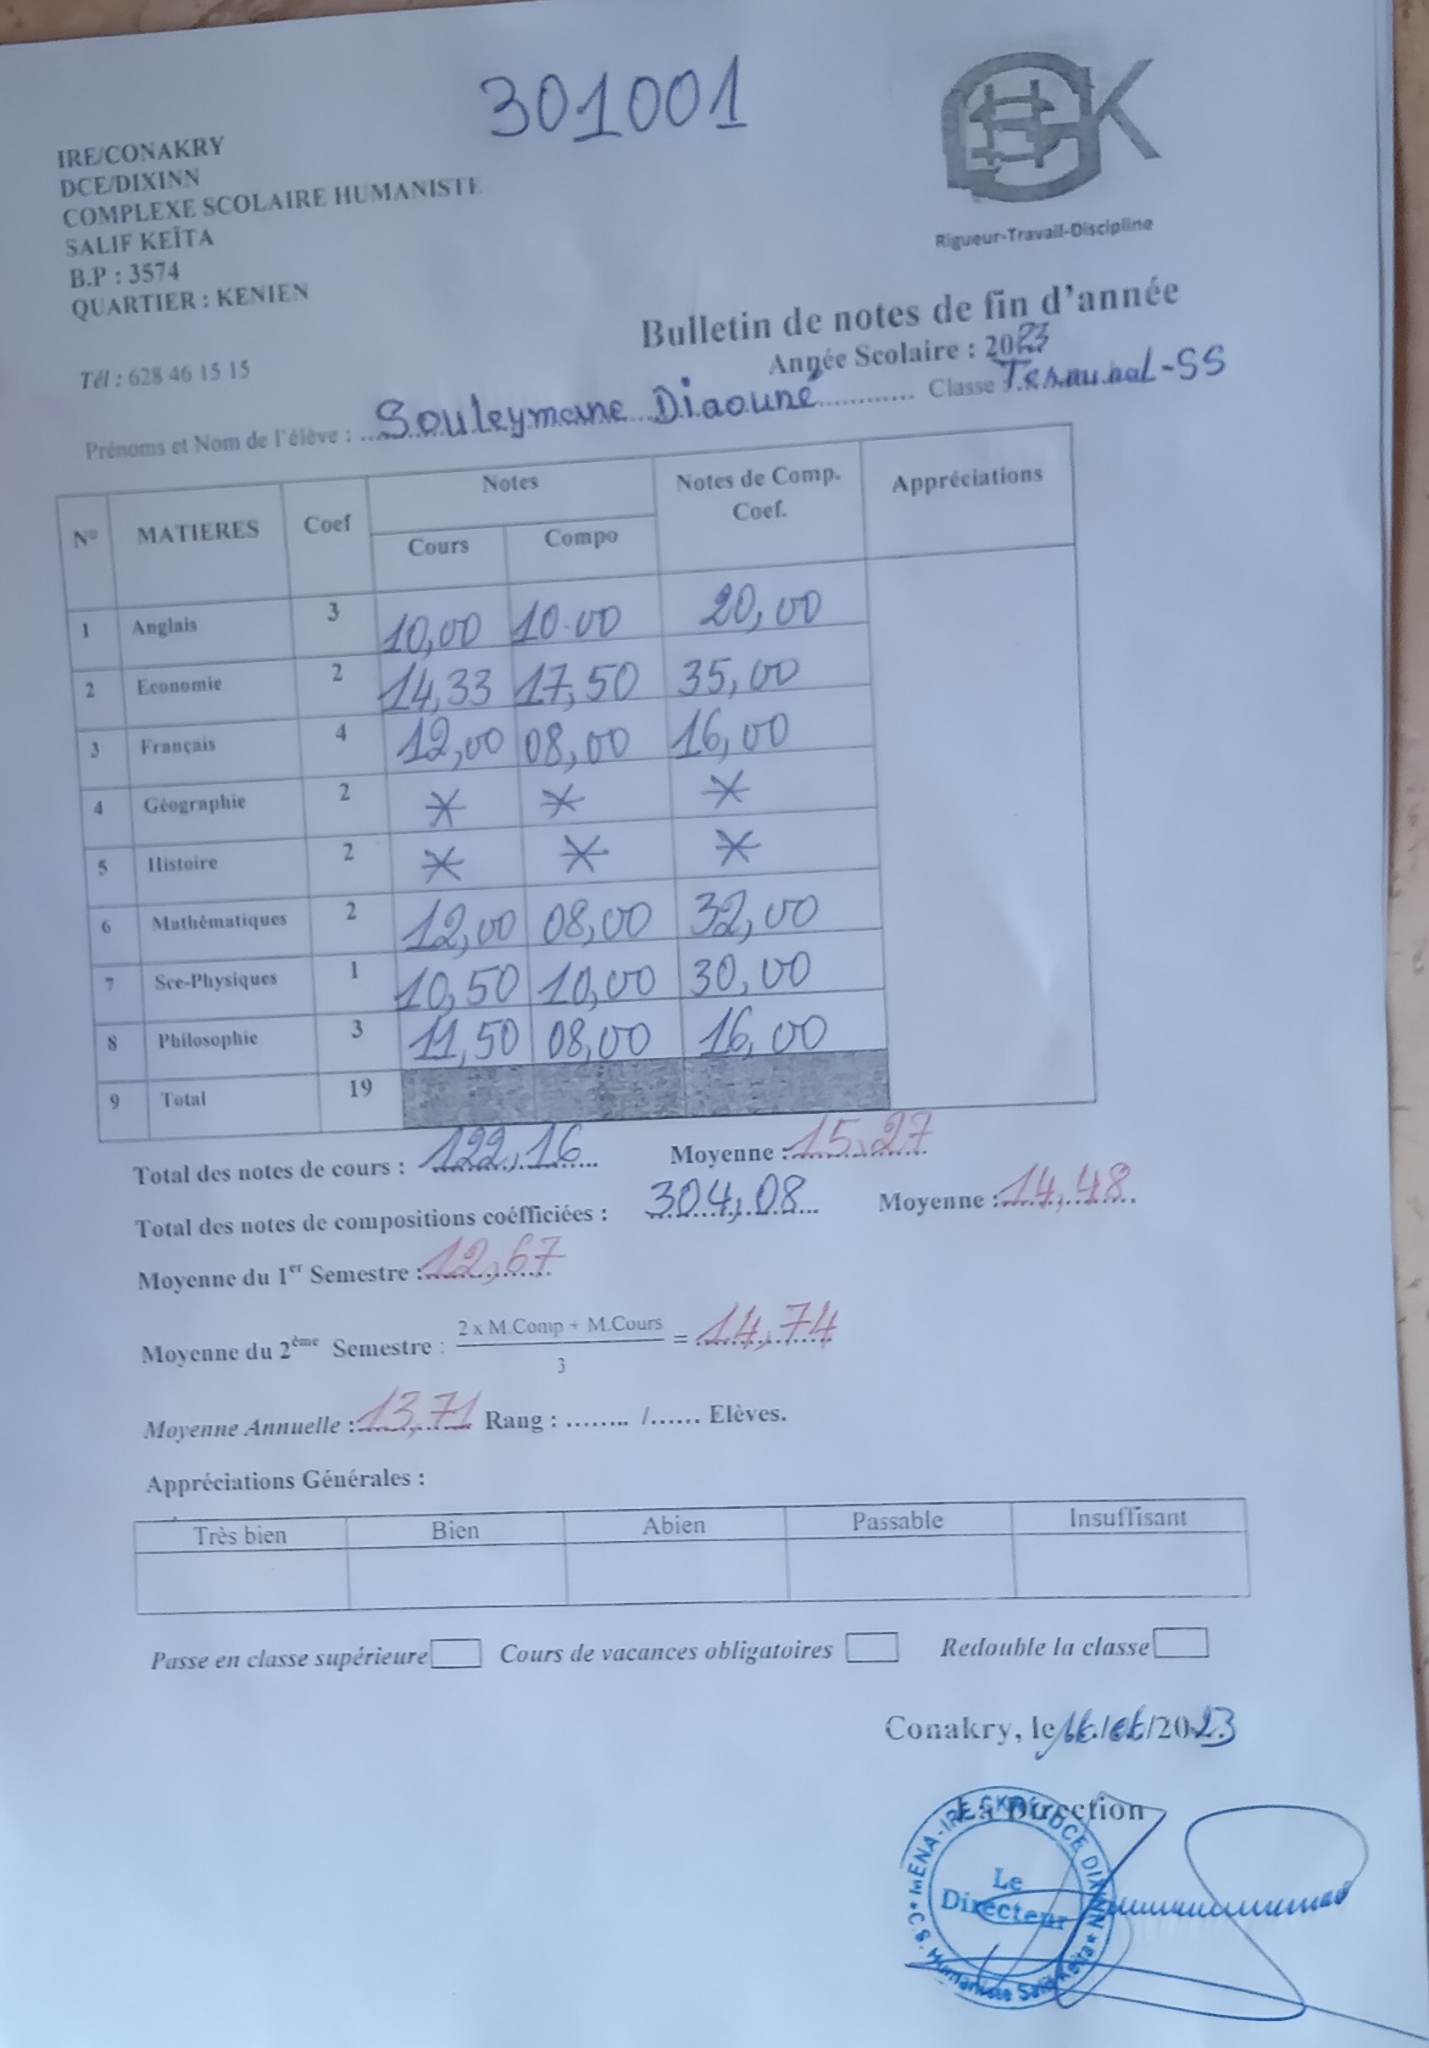 301001
IRE/CONAKRY
DCE/DIXINN
COMPLEXE SCOLAIRE HUMANISTE
SALIF KEÏTA
B.P : 3574
QUARTIER : KENIEN
Tél : 628 46 15 15
K
Rigueur-Travail-Discipline
Bulletin de notes de fin d'année
Année Scolaire : 2023
Prénoms et Nom de l'élève : Souleymane Diaouné Classe : Terminal-SS
N° MATIERES Coef Notes Notes de Comp. Coef. Appréciations
Cours Compo
1 Anglais 3 10,00 10.00 20,00
2 Economie 2 14,33 17,50 35,00
3 Français 4 12,00 08,00 16,00
4 Géographie 2 * * *
5 Histoire 2 * * *
6 Mathématiques 2 12,00 08,00 32,00
7 Sce-Physiques 1 10,50 10,00 30,00
8 Philosophie 3 11,50 08,00 16,00
9 Total 19
Total des notes de cours : 122,16 Moyenne : 15,27
Total des notes de compositions coéfficiées : 304,08 Moyenne : 14,48
Moyenne du 1er Semestre : 12,67
Moyenne du 2ème Semestre : 2 x M.Comp + M.Cours / 3 = 14,74
Moyenne Annuelle : 13,71 Rang : ........ /...... Elèves.
Appréciations Générales :
Très bien Bien Abien Passable Insuffisant
Passe en classe supérieure Cours de vacances obligatoires Redouble la classe
Conakry, le / /2023
La Direction
MENA-IRE CKRY DCE DIXINN * C.S. Humaniste Salif Keita *
Le
Directeur